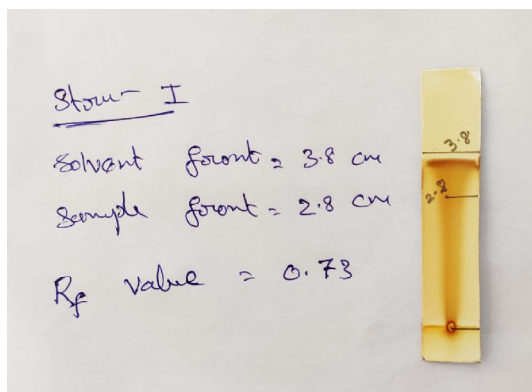 Solvent front = 3.8 cm
Sample front = 2.8 cm
Rf value = 0.73
I
3.8
2.8